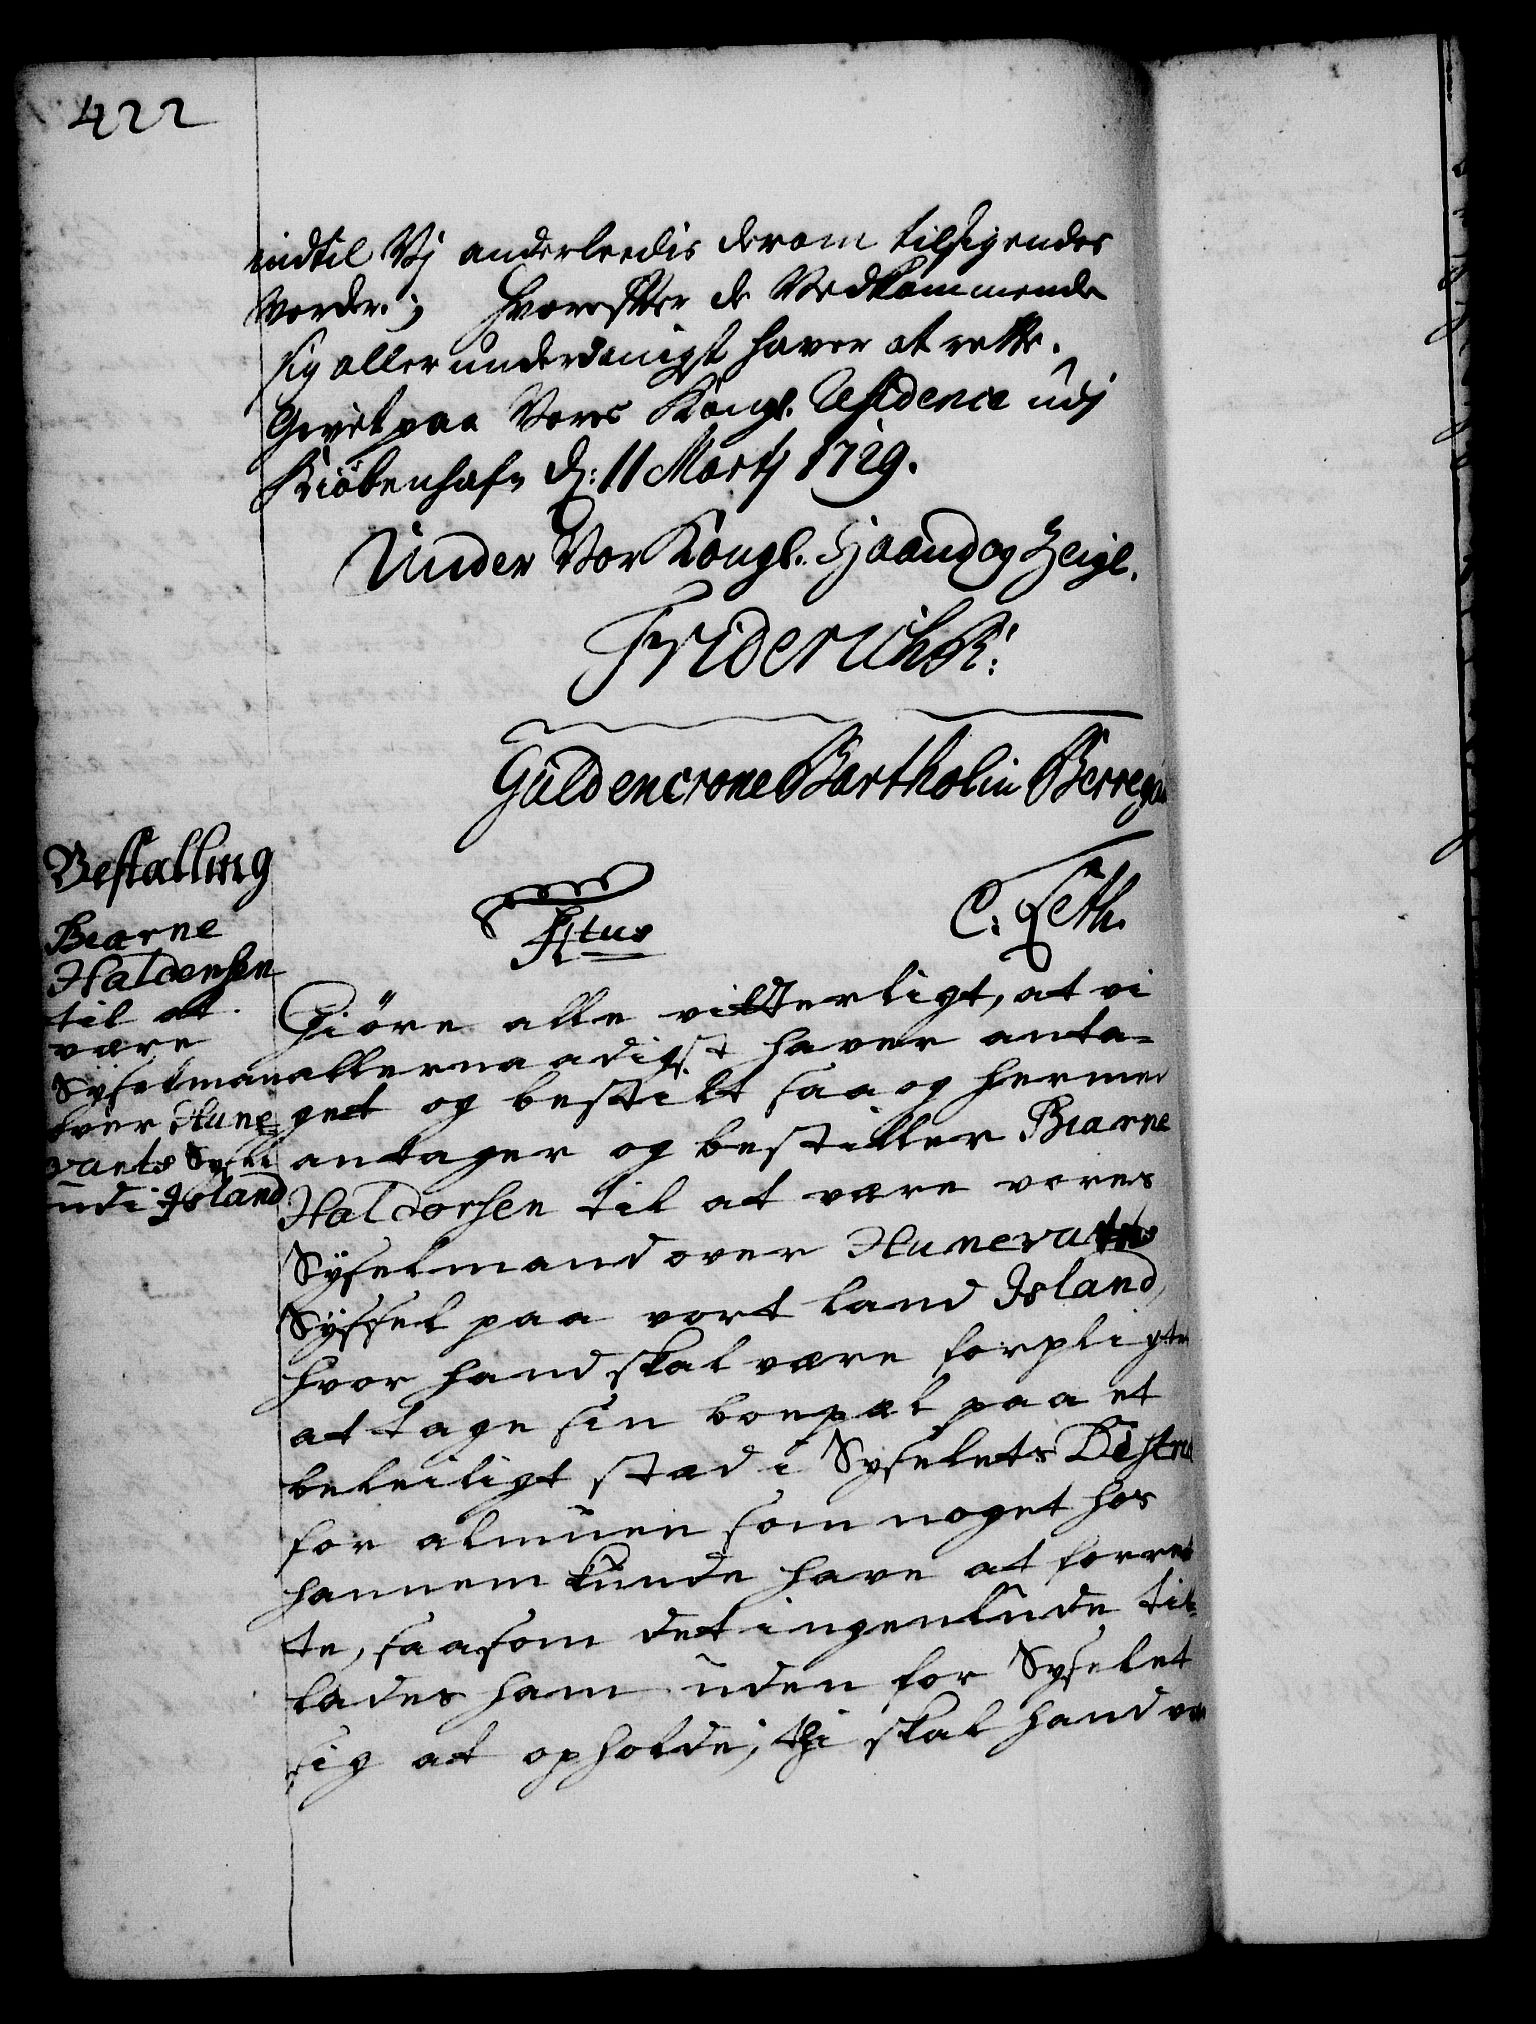 422
indtil Vj anderleedis derom tilsigendes
vorder.; Hvorefter de Vedkommende
sig allerunderdanigst haver at rette.
Givet paa Vores Kongl. Residence udj
Kiöbenhafn d: 11 Martj 1729.
Under Vor Kongl. Haand og Zeigl.
Friderich R:
Güldencrone Bartholin Berregaa
C: Feth.
Bestalling
Biarne
Haldorsen
til at
være
Syselman
over Hune-
vants Sysel
udi Island
Tit.
Giöre alle vitterligt, at vi
allernaadigst haver anta-
get og bestilt saa og hermed
antager og bestiller Biarne
Haldorsen til at være vores
Syselmand over Hunevatns
Syssel paa vort land Island,
hvor hand skal være forpligtet
at tage sin boepæl paa et
beleiligt stæd i Syselets Distrect
for almuen som noget hos
hannem kunde have at forret
te, saasom det ingenlunde til-
lades ham uden for Syselet
sig at opholde; thi skal hand væ